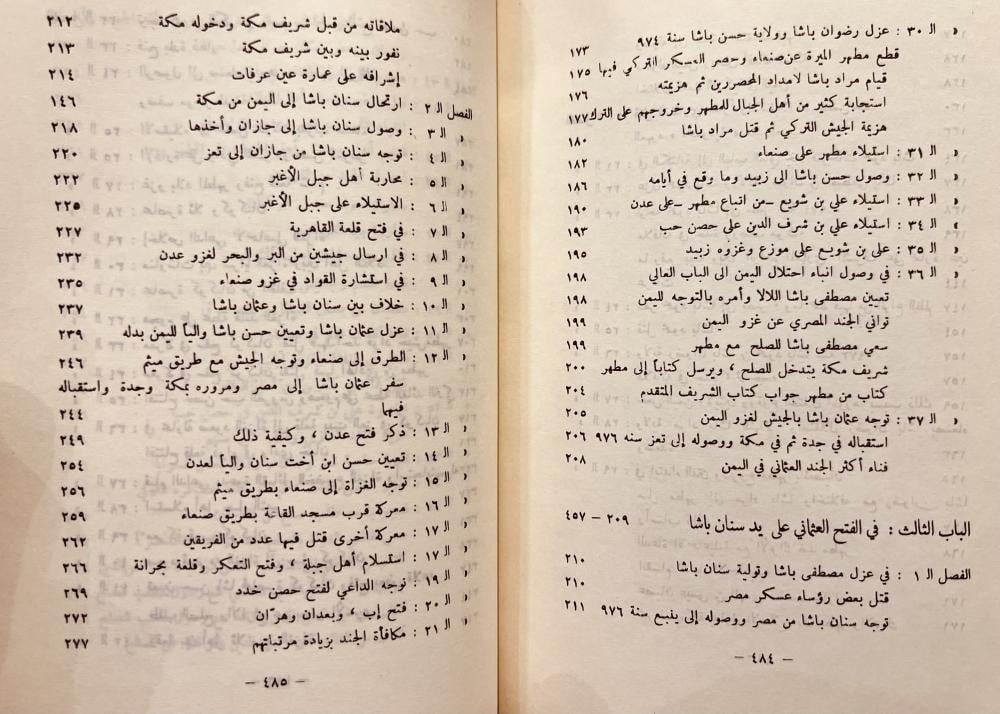 « الـ ٣٠ : عزل رضوان باشا وولاية حسن باشا سنة ٩٧٤ ١٧٣
قطع مطهر الميرة عن صنعاء وحصر العسكر التركي فيها ١٧٥
قيام مراد باشا لامداد المحصرين ثم هزيمته ١٧٦
استجابة كثير من أهل الجبال للمطهر وخروجهم على الترك ١٧٧
هزيمة الجيش التركي ثم قتل مراد باشا ١٨٠
« الـ ٣١ : استيلاء مطهر على صنعاء ١٨٢
« الـ ٣٢ : وصول حسن باشا الى زبيد وما وقع في أيامه ١٨٦
« الـ ٣٣ : استيلاء علي بن شويع -من اتباع مطهر- على عدن ١٩٠
« الـ ٣٤ : استيلاء علي بن شرف الدين على حصن حب ١٩٣
« الـ ٣٥ : علي بن شويع على موزع وغزوه زبيد ١٩٥
« الـ ٣٦ : في وصول انباء احتلال اليمن الى الباب العالي ١٩٨
تعيين مصطفى باشا اللالا وأمره بالتوجه لليمن ١٩٨
تواني الجند المصري عن غزو اليمن ١٩٩
سعي مصطفى باشا للصلح مع مطهر ١٩٩
شريف مكة يتدخل للصلح ، ويرسل كتاباً إلى مطهر ٢٠٠
كتاب من مطهر جواب كتاب الشريف المتقدم ٢٠٤
« الـ ٣٧ : توجه عثمان باشا بالجيش لغزو اليمن ٢٠٥
استقباله في جدة ثم في مكة ووصوله إلى تعز سنه ٩٧٦ ٢٠٦
فناء أكثر الجند العثماني في اليمن ٢٠٨
الباب الثالث : في الفتح العثماني على يد سنان باشا ٢٠٩ - ٤٥٧
الفصل الـ ١ : في عزل مصطفى باشا وتولية سنان باشا ٢١٠
قتل بعض رؤساء عسكر مصر ٢١٠
توجه سنان باشا من مصر ووصوله إلى ينبع سنة ٩٧٦ ٢١١
- ٤٨٤ -
ملاقاته من قبل شريف مكة ودخوله مكة ٢١٢
نفور بينه وبين شريف مكة ٢١٣
إشرافه على عمارة عين عرفات ٢١٤
الفصل الـ ٢ : ارتحال سنان باشا إلى اليمن من مكة ١٤٦
« الـ ٣ : وصول سنان باشا إلى جازان وأخذها ٢١٨
« الـ ٤ : توجه سنان باشا من جازان إلى تعز ٢٢٠
« الـ ٥ : محاربة أهل جبل الأغبر ٢٢٢
« الـ ٦ : الاستيلاء على جبل الأغبر ٢٢٥
« الـ ٧ : في فتح قلعة القاهرية ٢٢٧
« الـ ٨ : في ارسال جيشين من البر والبحر لغزو عدن ٢٣٢
« الـ ٩ : في استشارة القواد في غزو صنعاء ٢٣٥
« الـ ١٠ : خلاف بين سنان باشا وعثمان باشا ٢٣٧
« الـ ١١ : عزل عثمان باشا وتعيين حسن باشا والياً لليمن بدله ٢٣٩
« الـ ١٢ : الطرق إلى صنعاء وتوجه الجيش مع طريق ميثم ٢٤٦
سفر عثمان باشا إلى مصر ومروره بمكة وجدة واستقباله
فيها ٢٤٤
« الـ ١٣ : ذكر فتح عدن ، وكيفية ذلك ٢٤٩
« الـ ١٤ : تعيين حسن ابن أخت سنان والياً لعدن ٢٥٤
« الـ ١٥ : توجه الغزاة إلى صنعاء بطريق ميثم ٢٥٦
« الـ ١٦ : معركة قرب مسجد القاعة بطريق صنعاء ٢٥٩
« الـ ١٧ : معركة أخرى قتل فيها عدد من الفريقين ٢٦٢
« الـ ١٧ : استسلام أهل جبلة ، وفتح التعكر وقلعة بحرانة ٢٦٦
« الـ ١٩ : توجه الداعي لفتح حصن خدد ٢٦٩
« الـ ٢٠ : فتح إب ، وبعدان وهرّان ٢٧٢
« الـ ٢١ : مكافأة الجند بزيادة مرتباتهم ٢٧٧
- ٤٨٥ -